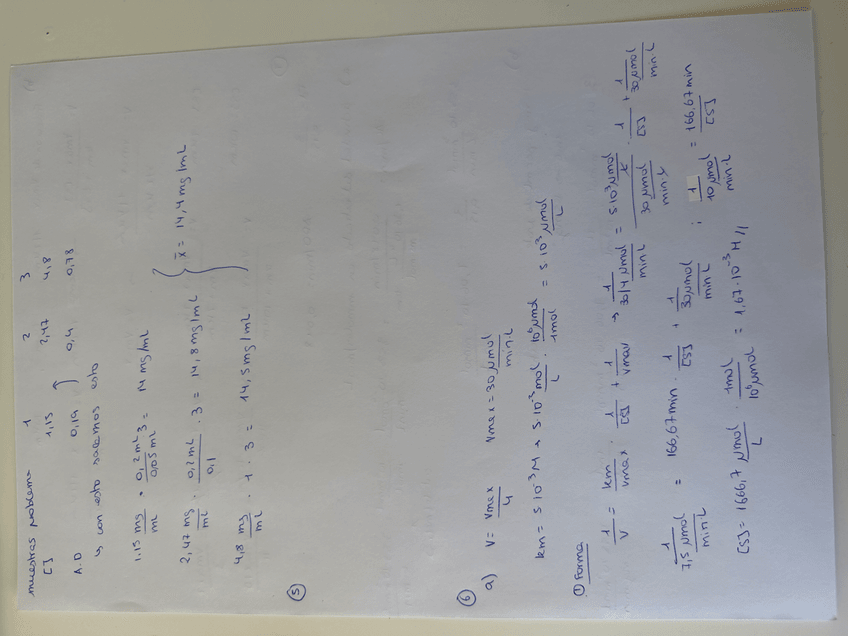 muestras problema 1 2 3
[ ] 1,15 2,47 4,8
A.D 0,19 0,4 0,78
↳ con esto sacamos esto
1.15 mg/mL · 0,2 mL/0,05 mL · 3 = 14 mg/mL
2,47 mg/mL · 0,2 mL/0,1 · 3 = 14,8 mg/mL } x̄ = 14,4 mg/mL
4,8 mg/mL · 1 · 3 = 14,5 mg/mL
⑤
⑥
a) V = Vmax/4 Vmax = 30 μmol/min·L
km = 5 10⁻³ M → 5·10⁻³ mol/L · 10⁶ μmol/1mol = 5 10³ μmol/L
① Forma
1/V = km/Vmax · 1/[S] + 1/Vmax → 1/(30/4 μmol/min·L) = (5 10³ μmol/L)/(30 μmol/min·L) · 1/[S] + 1/(30 μmol/min·L)
1/(7,5 μmol/min·L) = 166,67 min · 1/[S] + 1/(30 μmol/min·L) ; 1/(10 μmol/min·L) = 166,67 min/[S]
[S] = 1666,7 μmol/L · 1mol/10⁶ μmol = 1,67·10⁻³ M //